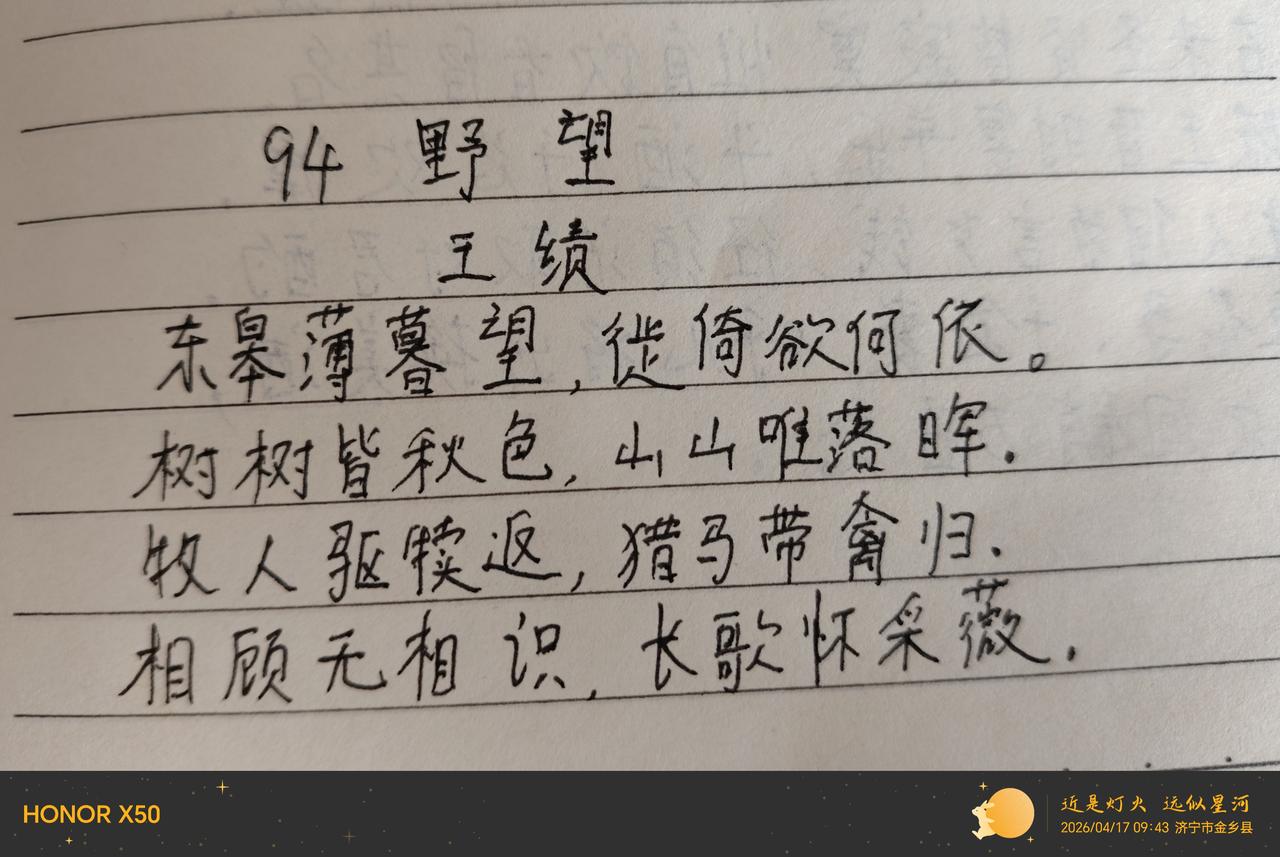 94 野望
王绩
东皋薄暮望,徙倚欲何依。
树树皆秋色,山山唯落晖.
牧人驱犊返,猎马带禽归.
相顾无相识,长歌怀采薇.
HONOR X50
近是灯火 远似星河
2026/04/17 09:43 济宁市金乡县